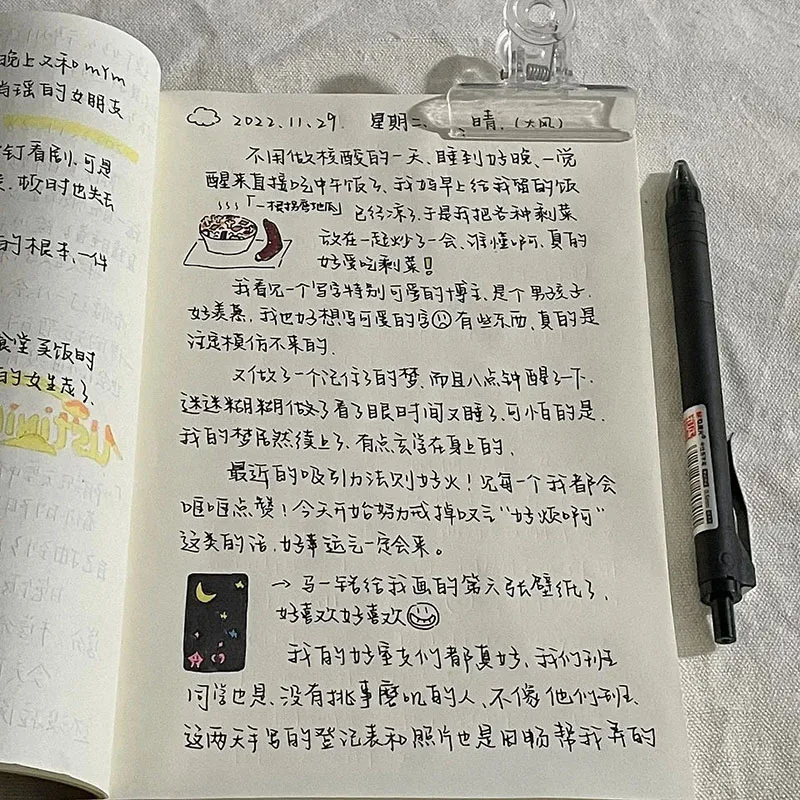 晚上又和mym
的女朋友
钉看剧.可是
板时也失去
的根本.一件
食堂买饭时
的女生走了.
2022.11.29. 星期二. 晴.(大风)
不用做核酸的一天、睡到好晚、一觉
醒来直接吃中午饭了、我妈早上给我留的饭
「一根拐弯地瓜」 已经凉了、于是我把各种剩菜
放在一起炒了一会、谁懂啊、真的
好爱吃剩菜!
我看见一个写字特别可爱的博主、是个男孩子.
好羡慕、我也好想写可爱的字 有些东西、真的是
注定模仿不来的.
又做了一个记住了的梦、而且八点钟醒了一下.
迷迷糊糊做了看了眼时间又睡了、可怕的是、
我的梦居然续上了、有点玄学在身上的、
最近的吸引力法则好火!见每一个我都会
哐哐点赞!今天开始努力戒掉叹气"好烦啊"
这类的话、好事运气一定会来。
→ 马一铭给我画的第六张壁纸了、
好喜欢好喜欢
我的好室友们都真好、我们班
同学也是、没有挑事磨叽的人、不像他们班、
这两天手写的登记表和照片也是日畅帮我弄的